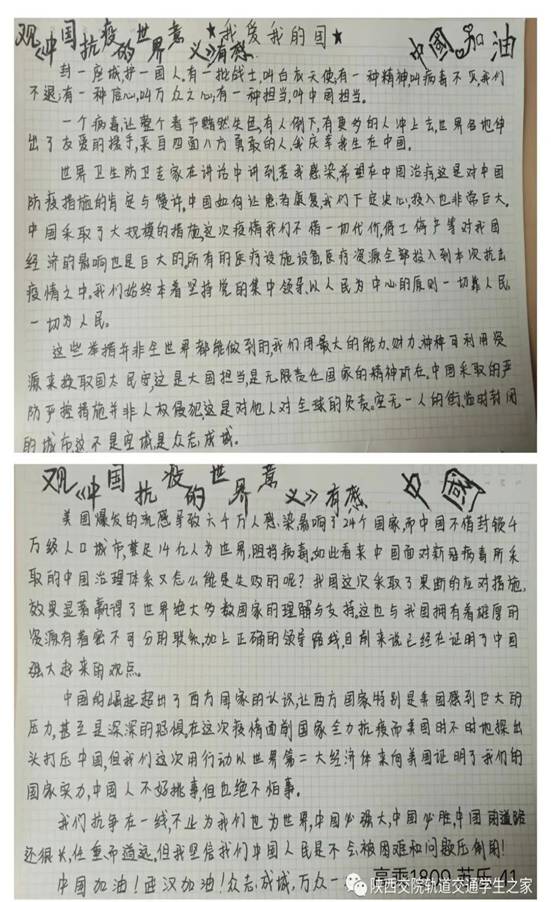 观《中国抗疫的世界意义》有感 ★我爱我的国★ 中國加油
封一座城,护一国人,有一批战士,叫白衣天使,有一种精神,叫病毒不灭,我们
不退;有一种信心,叫万众之心;有一种担当,叫中国担当。
一个病毒,让整个春节黯然失色,有人倒下,有更多的人冲上去,世界各地伸
出了友爱的援手,来自四面八方勇敢的人,我庆幸我生在中国。
世界卫生防卫专家在讲话中讲到若我感染,希望在中国治病,这是对中国
防疫措施的肯定与赞许,中国如何让患者康复,我们下定决心,投入也非常巨大。
中国采取了大规模的措施,这次疫情我们不惜一切代价,停工停产等对我国
经济的影响也是巨大的,所有的医疗设施设备,医疗资源全部投入到本次抗击
疫情之中。我们始终本着坚持党的集中领导,以人民为中心的原则一切靠人民,
一切为人民。
这些举措并非全世界都能做到的,我们用最大的能力、财力、种种可利用资
源来换取国太民安,这是大国担当,是无限责任国家的精神所在。中国采取的严
防严控措施并非人权侵犯,这是对他人对全球的负责。空无一人的街,临时封闭
的城市,这不是空城,是众志成城。
观《中国抗疫的世界意义》有感 中國
美国爆发的流感导致六千万人感染,影响了24个国家,而中国不惜封锁千
万级人口城市,集足14亿人为世界,阻挡病毒。如此看来中国面对新冠病毒所采
取的中国治理体系又怎么能是失败的呢?我国这次采取了果断的应对措施,
效果显著,赢得了世界绝大多数国家的理解与支持。这也与我国拥有着雄厚的
资源有着密不可分的联系,加上正确的领导路线,目前来说已经在证明了中国
强大起来的观点。
中国的崛起超出了西方国家的认识,让西方国家特别是美国感到巨大的
压力,甚至是深深的恐惧,在这次疫情面前国家全力抗疫而美国时不时地探出
头打压中国,但我们这次用行动以世界第二大经济体来向美国证明了我们的
国家实力,中国人不好挑事,但也绝不怕事。
我们抗争在一线,不止为我们也为世界,中国必强大,中国必胜,中国的道路
还很长,任重而道远,但我坚信我们中国人民是不会被困难和问题压倒的!
中国加油!武汉加油!众志成城,万众一
高乘1809 苏乐 41
陕西交院轨道交通学生之家